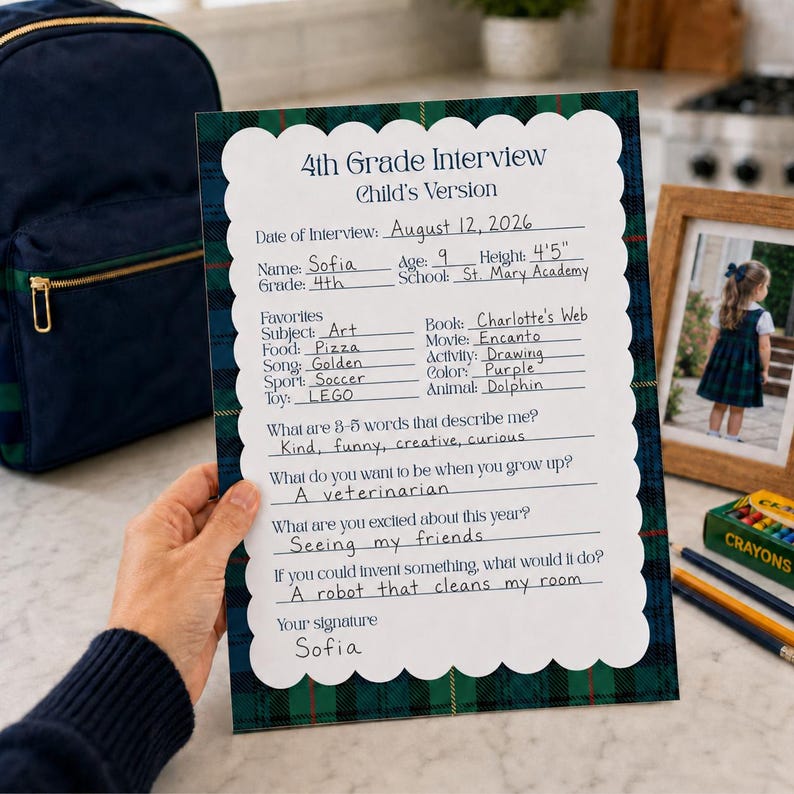 4th Grade Interview
Child's Version
Date of Interview: August 12, 2026
Name: Sofia Age: 9 Height: 4'5"
Grade: 4th School: St. Mary Academy
Favorites
Subject: Art Book: Charlotte's Web
Food: Pizza Movie: Encanto
Song: Golden Activity: Drawing
Sport: Soccer Color: Purple
Toy: LEGO Animal: Dolphin
What are 3-5 words that describe me?
Kind, funny, creative, curious
What do you want to be when you grow up?
A veterinarian
What are you excited about this year?
Seeing my friends
If you could invent something, what would it do?
A robot that cleans my room
Your signature
Sofia
CRAYONS